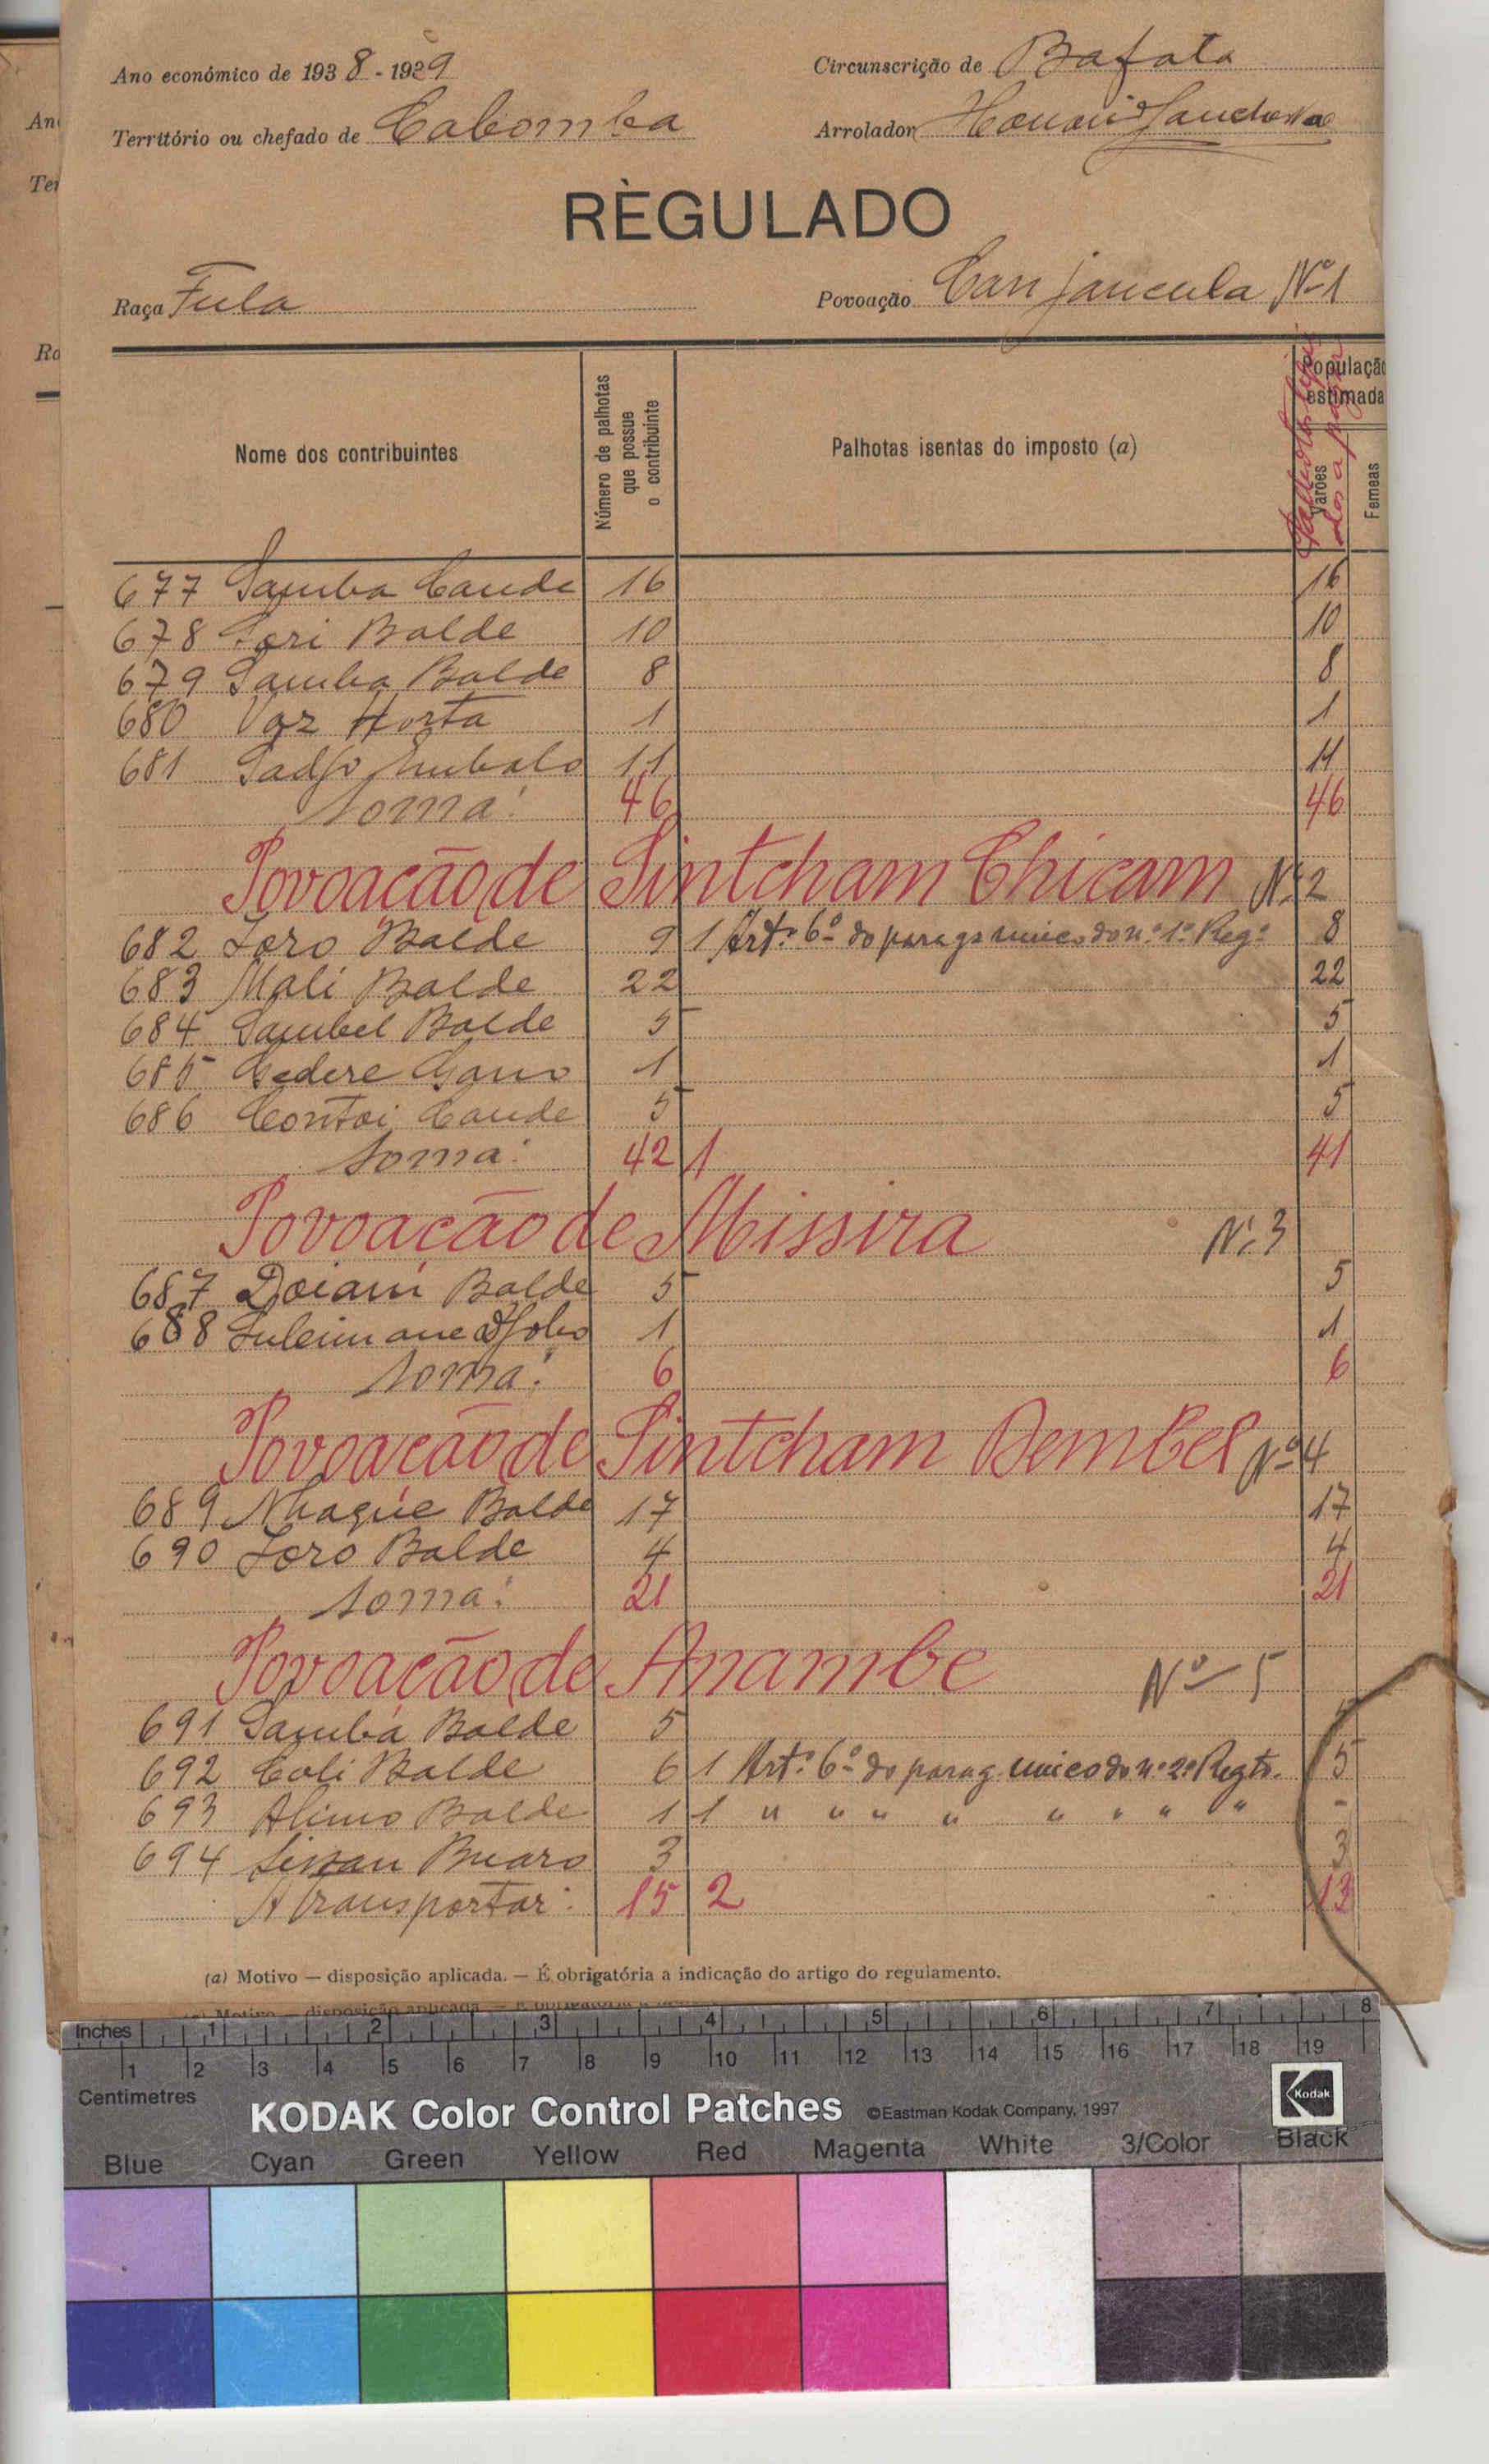 Ano económico de 1938 - 1939
Circunscrição de Bafata
Território ou chefado de Cabomba
Arrolador
RÈGULADO
Raça Fula
Povoação Canjancula Nº 1
Nome dos contribuintes
Número de palhotas que possue o contribuinte
Palhotas isentas do imposto (a)
População estimada
Varões
Femeas
677 Samba Cande 16 16
678 Sori Balde 10 10
679 Samba Balde 8 8
680 Vaz Horta 1 1
681 Sadjo Embalo 11 11
Soma: 46 46
Povoação de Sintcham Chicam Nº 2
682 Ioro Balde 9 1 Artº 6º do parag unico do nº 1º Regº 8
683 Mali Balde 22 22
684 Sambel Balde 5 5
685 Gedere Gano 1 1
686 Contoi Cande 5 5
Soma: 42 1 41
Povoação de Missira Nº 3
687 Doiam Balde 5 5
688 Suleimane Djolo 1 1
Soma: 6 6
Povoação de Sintcham Dembel Nº 4
689 Nhaque Balde 17 17
690 Ioro Balde 4 4
Soma: 21 21
Povoação de Anambe Nº 5
691 Samba Balde 5 5
692 Coli Balde 6 1 Artº 6º do parag. unico do nº 2º Regtº. 5
693 Alimo Balde 1 1 " " " " " " " " -
694 Buaro 3 3
A transportar: 15 2 13
(a) Motivo — disposição aplicada. — É obrigatória a indicação do artigo do regulamento.
Inches 1 2 3 4 5 6 7 8
1 2 3 4 5 6 7 8 9 10 11 12 13 14 15 16 17 18 19
Centimetres
KODAK Color Control Patches ©Eastman Kodak Company, 1997 Kodak
Blue Cyan Green Yellow Red Magenta White 3/Color Black